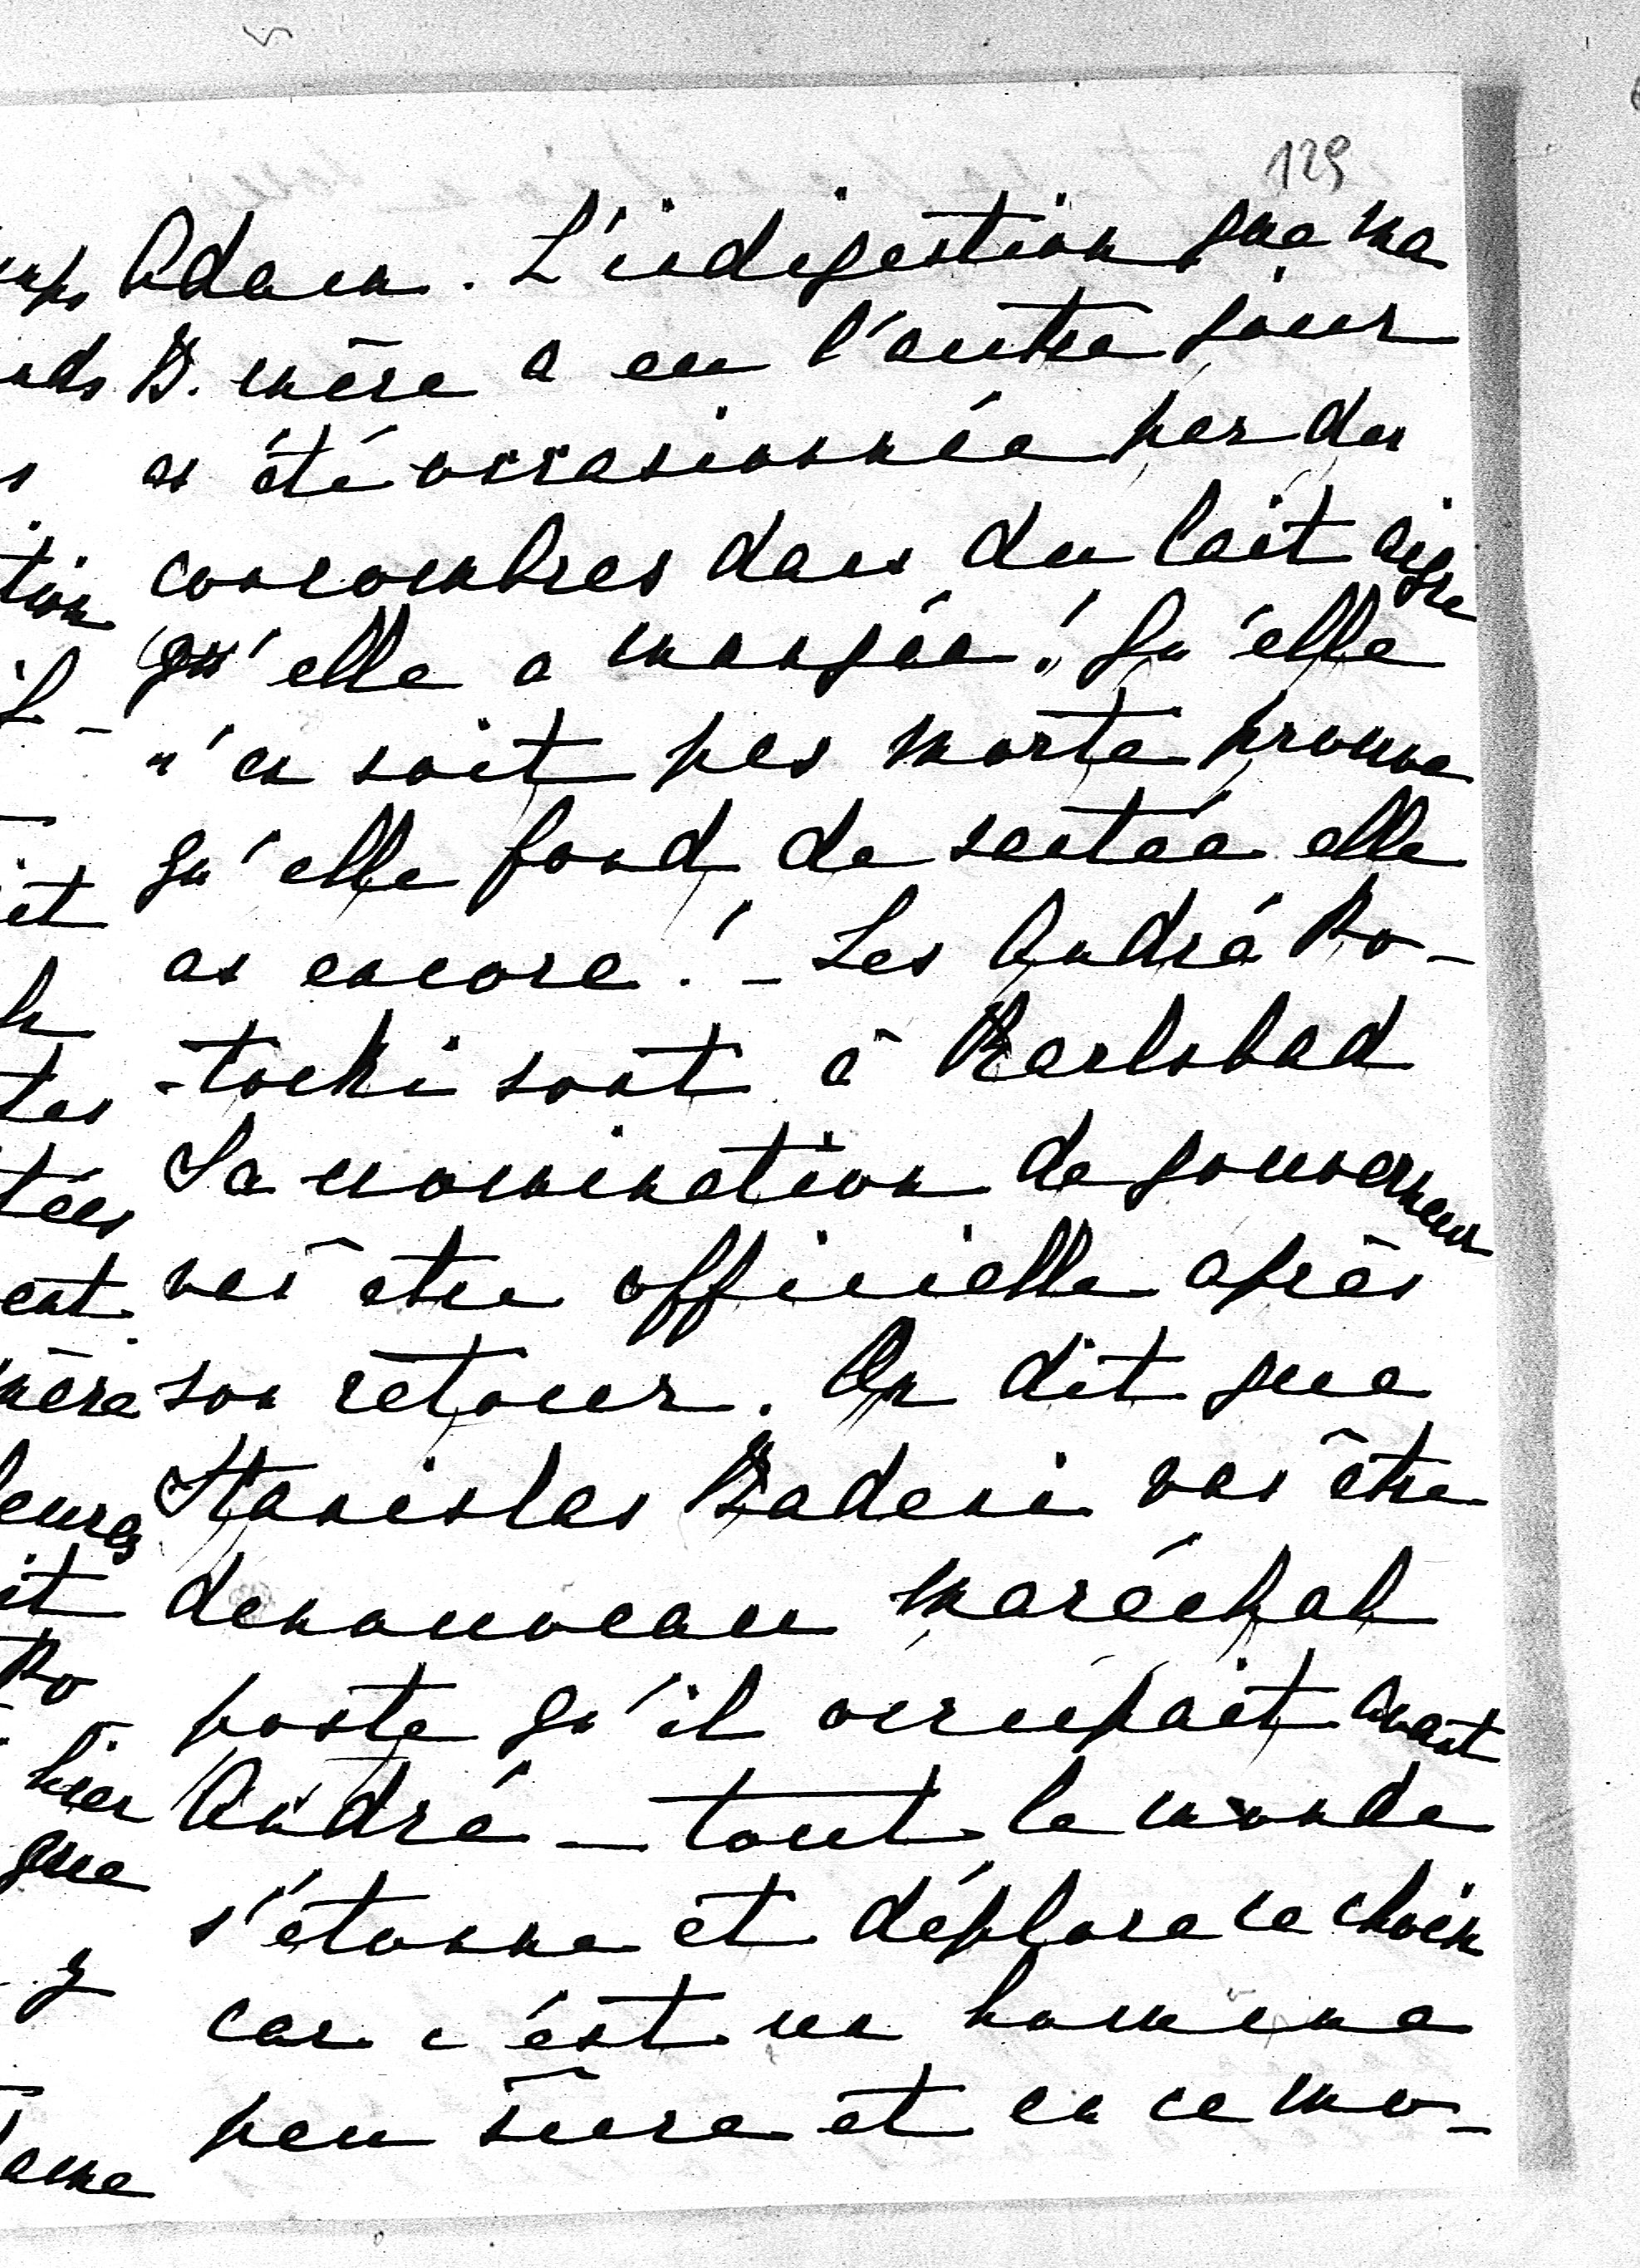 129
Adam. L'indigestion que ma
B. mère a eu l'autre jour
as été occasionnée par des
concombres dans du lait aigre
qu'elle a mangée! Qu'elle
n'en soit pas morte prouve
qu'elle fond de santée elle
as encore! – Les André Po-
-tocki sont à Karlsbad
Sa nomination de gouverneur
vas être officielle après
son retour. On dit que
Stanislas Badeni vas être
denouveau maréchal
poste qu'il occupait avant
André – tout le monde
s'étonne et déplore ce choix
car c'est un homme
peu sûre et en ce mo-